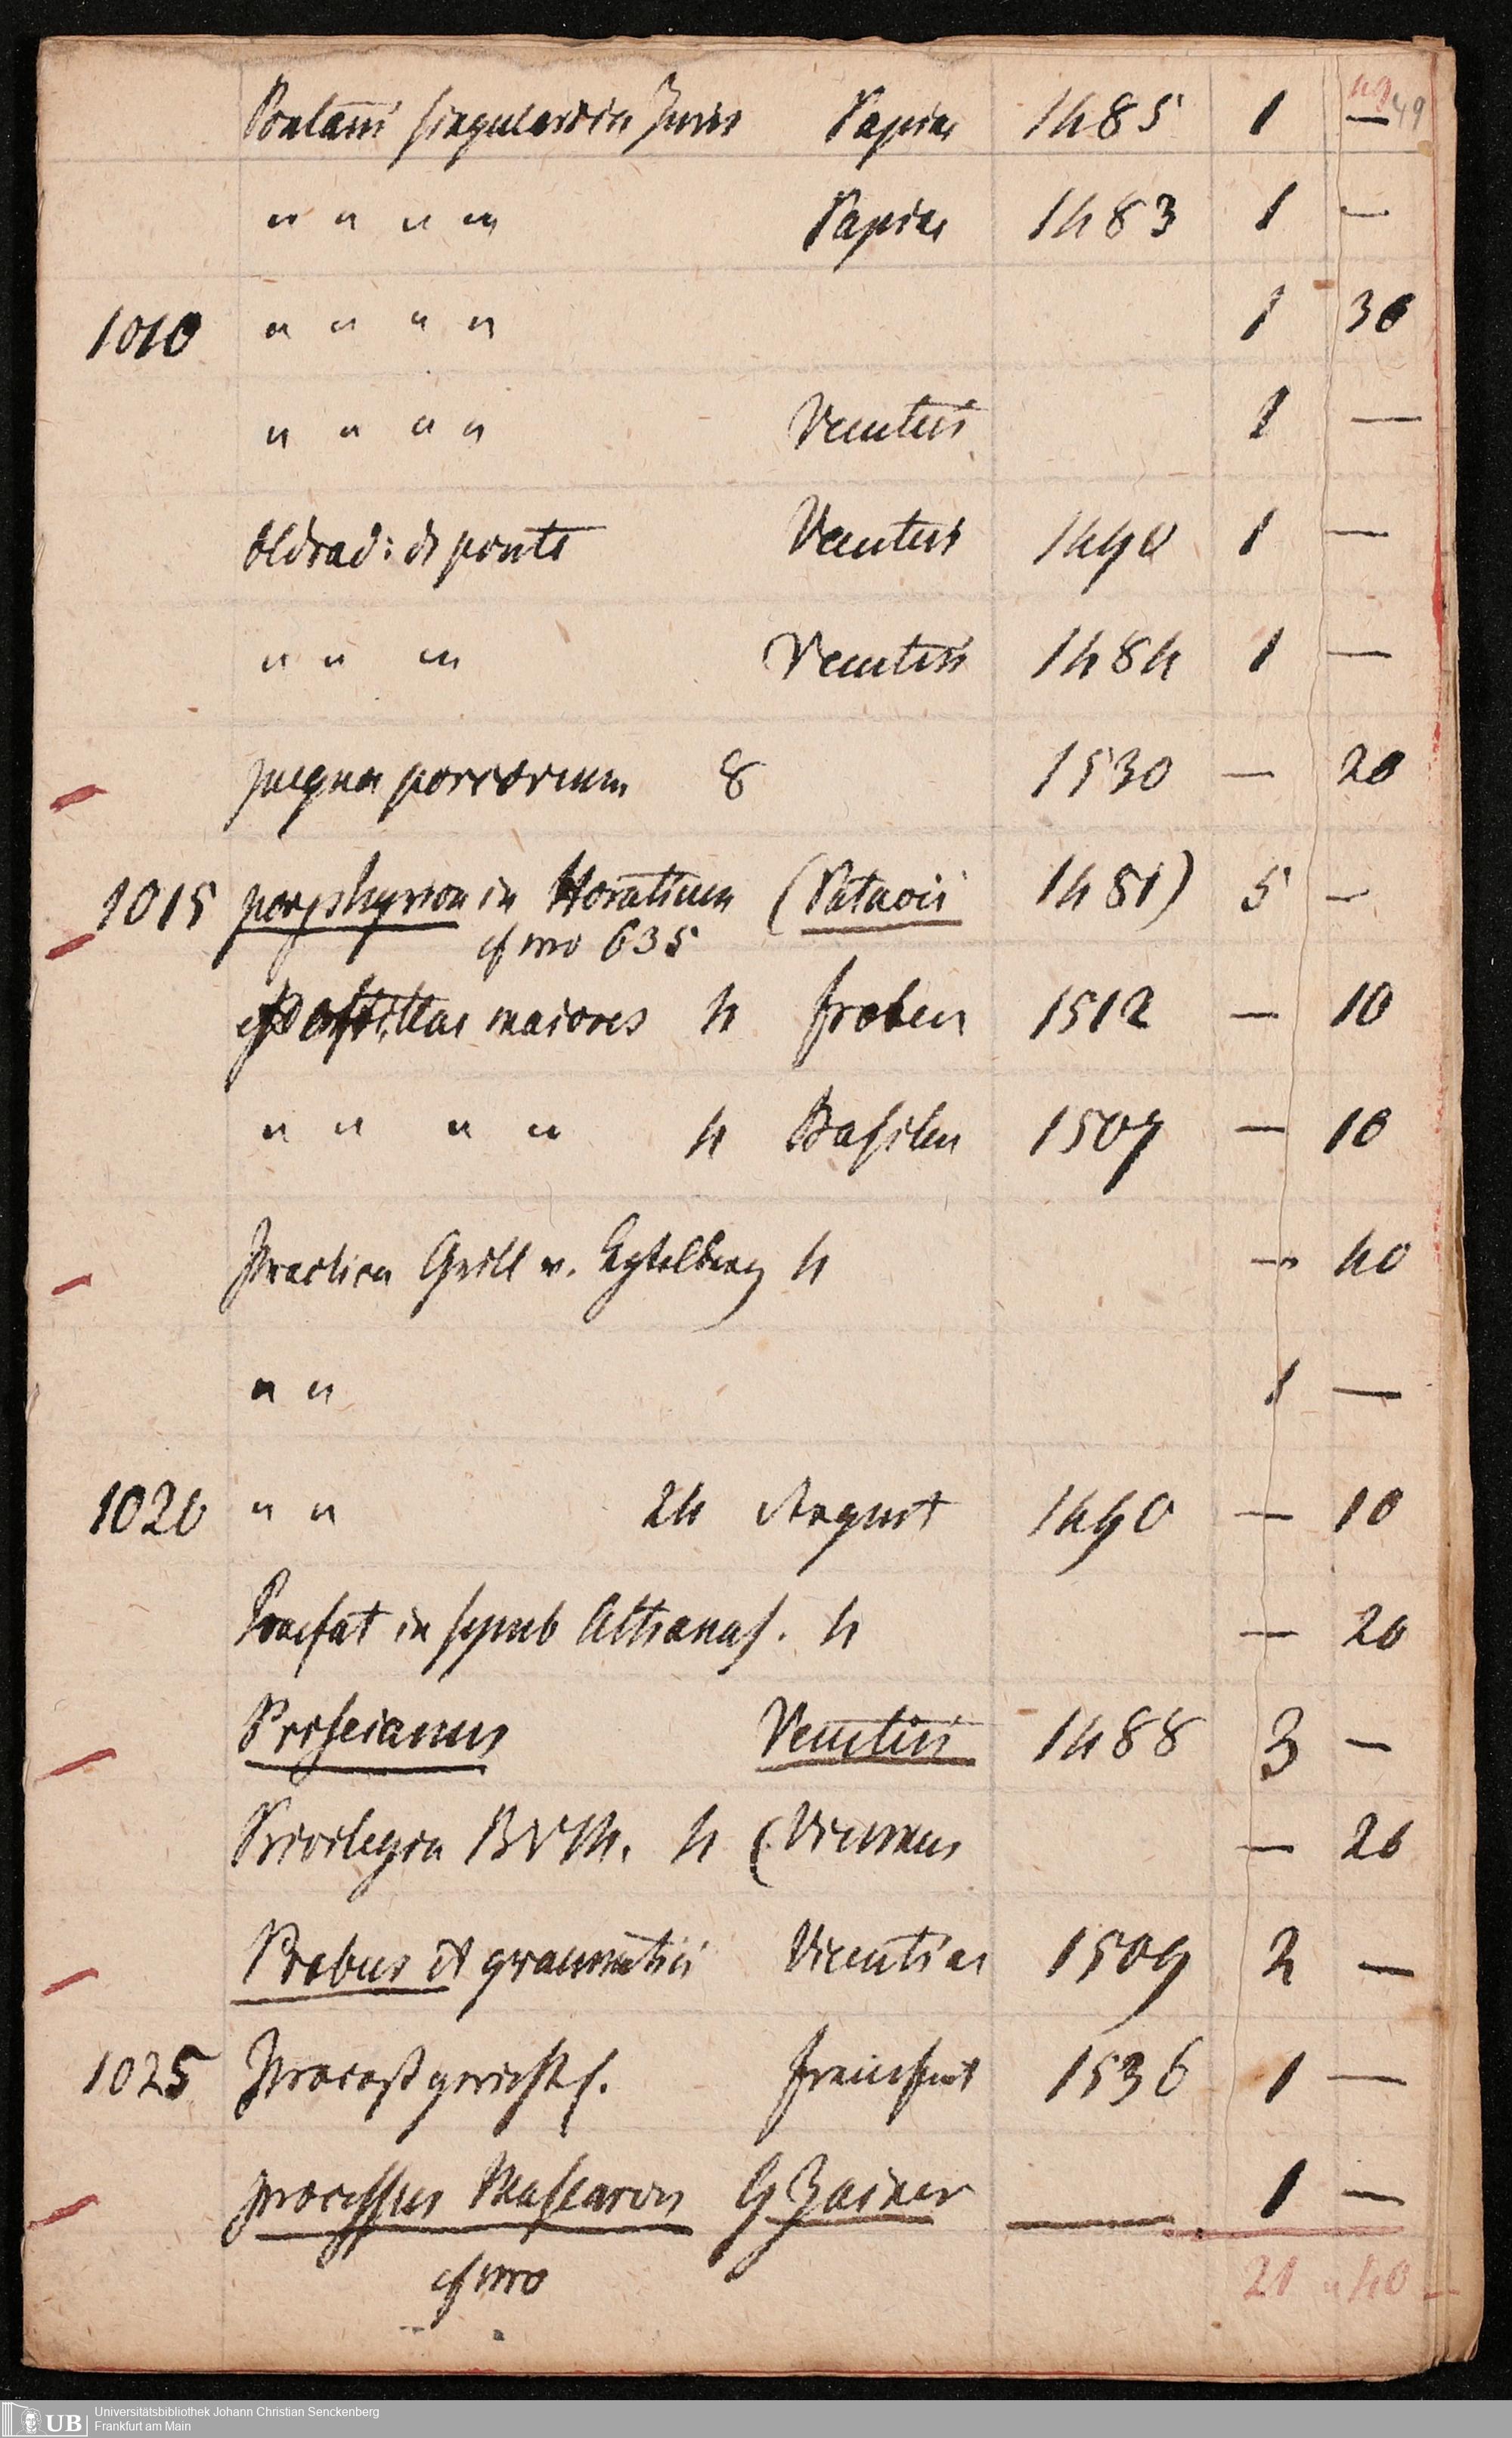 49 49
Pontani singularia in Juris Papiae 1485 1 —
" " " " Papiae 1483 1 —
1010 " " " " 1 30
" " " " Venetiis 1 —
Oldrad: de ponte Venetiis 1490 1 —
" " " Venetiis 1484 1 —
pugna porcorum 8 1530 — 20
1015 porphyrion in Horatium (Patavii 1481) 5 —
cf nro 635
Postillae maiores 4 froben 1512 — 10
" " " " 4 Basileae 1509 — 10
Practica Grill v. 4 — 40
" " 1 —
1020 " " 24 August 1490 — 10
Praefat in symb Athanas. 4 — 20
Priscianus Venetiis 1488 3 —
Privilegia BVM. 4 (Viennens — 20
Probus et grammatici Vicentiae 1509 2 —
1025 Proceß gerichts. frankfurt 1536 1 —
processus Mascaron G Zainer — 1 —
cf nro
21 " 40
Universitätsbibliothek Johann Christian Senckenberg
Frankfurt am Main
UB